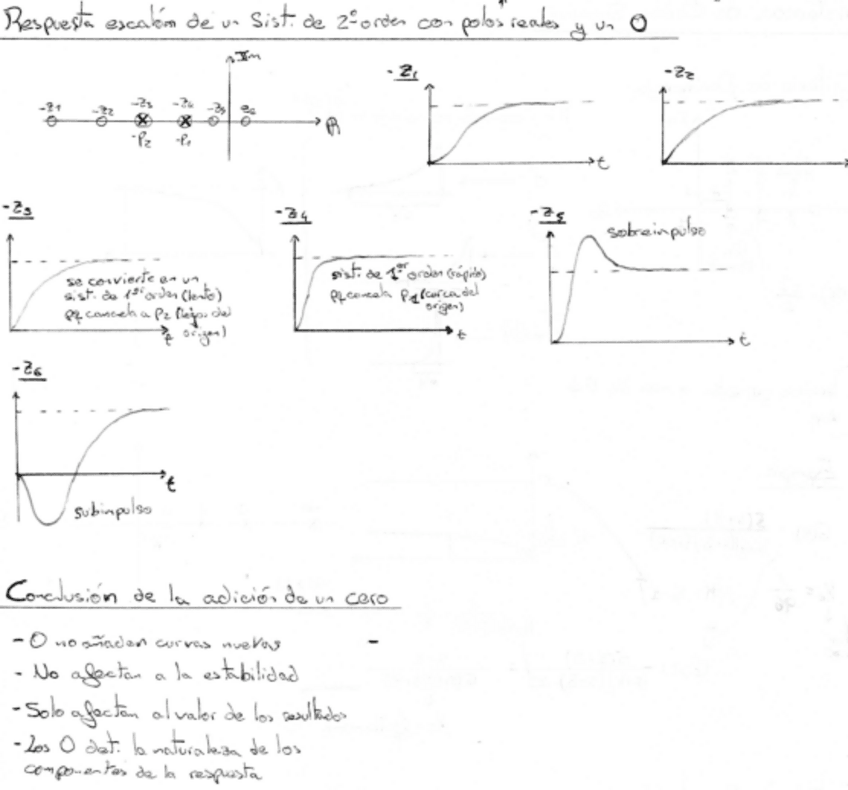 Respuesta escalón de un Sist. de 2º orden con polos reales y un 0
Im
-Z1 -Z2 -Z3 -Z4 -Z5 Z6
-P2 -P1
R
-Z1
t
-Z2
-Z3
se convierte en un
sist. de 1er orden (lento)
pq cancela a P2 (lejos del
origen)
t
-Z4
sist. de 1er orden (rápido)
pq cancela P1 (cerca del
origen)
t
-Z5
sobreimpulso
t
-Z6
t
subimpulso
Conclusión de la adición de un cero
- 0 no añaden curvas nuevas -
- No afectan a la estabilidad
- Solo afectan al valor de los resultados
- Los 0 det. la naturaleza de los
componentes de la respuesta